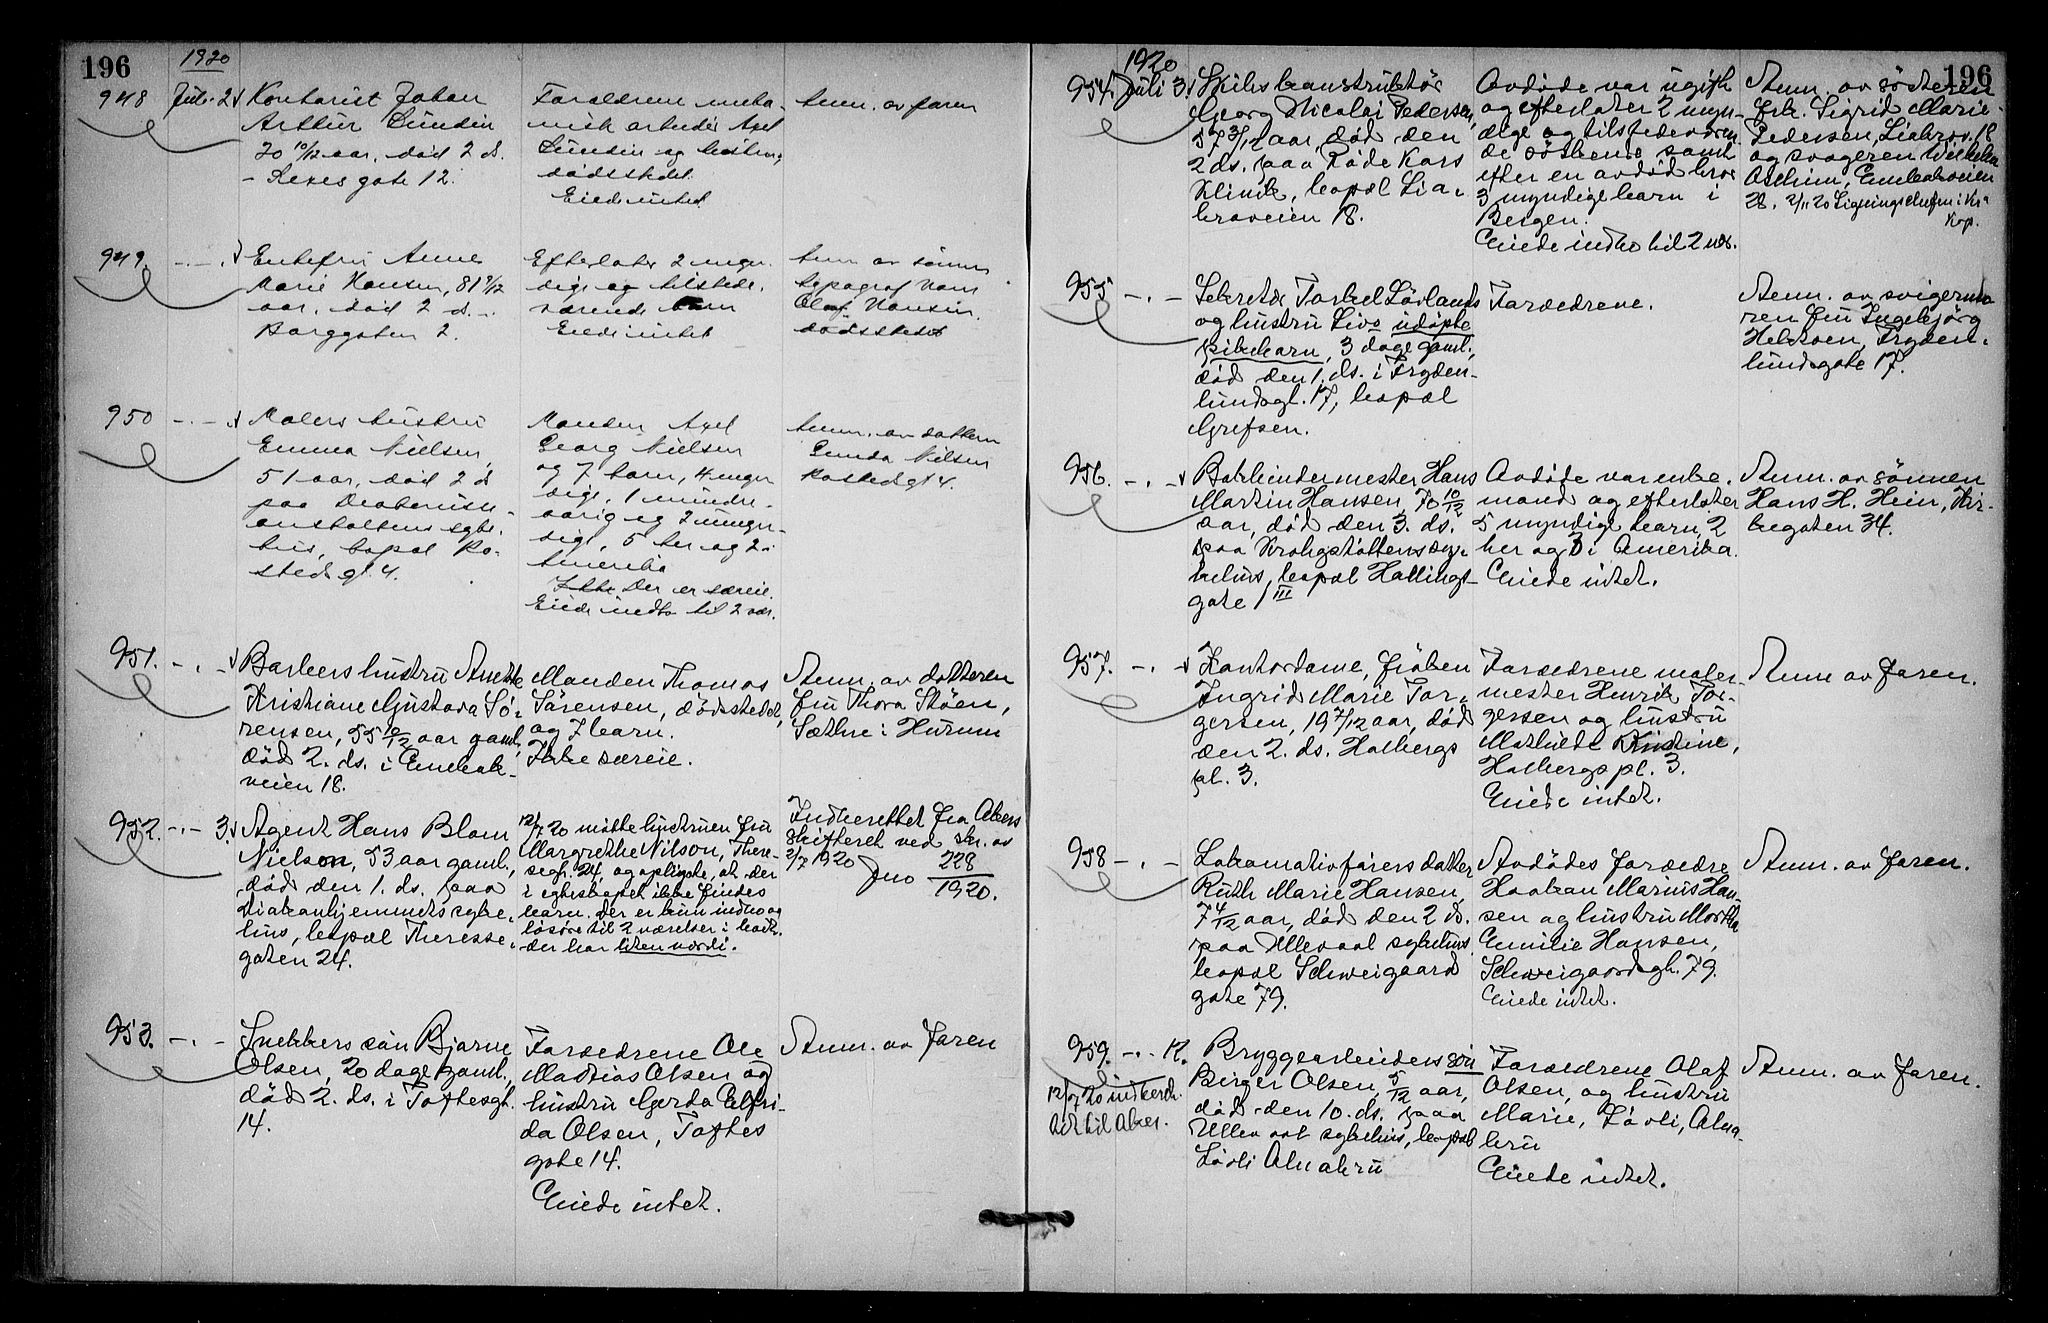 196
1920
948 Juli 2
Kontorist Johan
Arthur Lundin
20 10/12 aar, död 2 ds.
Rexesgate 12.
Forældrene meka-
nisk arbeider Axel
Lundin og hustru,
dödsstedet.
Eiede intet
Anm. av faren
949.
Enkefru Anne
Marie Hansen, 81 9/12
aar, död 2 ds.
Borggaten 2.
Efterlater 2 myn-
dige og tilstede-
værende barn
Eiede intet
Anm av sönnen
typograf Hans
Olaf Hansen,
dödsstedet
950
Malers hustru
Emma Nielsen,
51 aar, död 2 ds
paa Diakonisse-
anstaltens syke-
hus, bopæl Ro-
stedsgt 4.
Manden Axel
Georg Nielsen
og 7 barn, 4 myn
dige, 1 mindre-
aarig og 2 umyn-
dige, 5 her og 2 i
Amerika
Ikke Der er særeie.
Eiede indbo til 2 vær.
Anm. av datteren
Gunda Nielsen
Rostedsgt 4.
951.
Barbers hustru Anette
Kristiane Gustava Sö-
rensen, 55 10/12 aar gaml,
död 2. ds. i Enebak-
veien 18.
Manden Thomas
Sörensen, dödsstedet,
og 7 barn.
Ikke særeie.
Anm. av datteren
fru Thora Stöen,
Sætre i Hurum
952. 3.
Agent Hans Blom
Nielson, 53 aar gaml.,
död den 1. ds. paa
Diakonhjemmets syke-
hus, bopæl Therese-
gaten 24.
12/7 20 mötte hustruen fru
Margrethe Nilson, There-
segt. 24, og oplyste, at der
i egteskapet ikke findes
barn. Der er kun indbo og
lösöre til 2 værelser i behold
der har liten værdi.
Indberettet fra Akers
skifteret ved skr. av
2/7 1920 Jno 228
1920.
953.
Snekkers sön Bjarne
Olsen, 20 dage gaml.,
död 2. ds. i Toftesgt.
14.
Forældrene Ole
Mathias Olsen og
hustru Gerda Elfri-
da Olsen, Toftes
gate 14.
Eiede intet.
Anm. av faren
196
1920
954. Juli 3.
Skibskonstruktör
Georg Nicolai Pedersen,
57 3/12 aar, död den
2 ds. paa Röde Kors
Klinik, bopæl Lia-
broveien 18.
Avdöde var ugift
og efterlater 2 myn-
dige og tilstedeværen-
de söskend samt
efter en avdöd bror
3 myndige barn i
Bergen.
Eiede indbo til 2 vær.
Anm. av sösteren
frk. Sigrid Marie
Pedersen, Liabrov. 18
og svogeren Wilhelm
Aschim, Enebakveien
28. 2/11 20 Ligningschefen i Kr.a
Kop.
955
Sekretær Torkel Lövlands
og hustru Livs udöpte
pikebarn, 3 dage gaml.,
död den 1. ds. i Fryden-
lundsgt. 17, bopæl
Grefsen.
Forældrene.
Anm. av svigermo
ren fru Ingebjörg
Heltoen, Fryden-
lundsgate 17.
956.
Bokbindermester Hans
Martin Hansen, 70 10/12
aar, död den 3. ds.
paa Krohgstöttens sy-
kehus, bopæl Hallings-
gate 1 III
Avdöde var enke-
mand og efterlater
5 myndige barn, 2
her og 3 i Amerika.
Eiede intet.
Anm. av sönnen
Hans H. Hein, Kir-
kegaten 34.
957.
Kontordame, fröken
Ingrid Marie Tor-
gersen, 19 7/12 aar, död
den 2. ds. Holbergs
pl. 3.
Forældrene maler-
mester Henrik Tor-
gersen og hustru
Mathilde Kristine,
Holbergs pl. 3.
Eiede intet.
Anm av faren.
958
Lokomotivförers datter
Ruth Marie Hansen,
7 4/12 aar, död den 2 ds.
paa Ullevaal sykehus
bopæl Schweigaard
gate 79.
Avdödes forældre
Haakon Marius Han-
sen og hustru Martha
Emilie Hansen,
Schweigaardsgt. 79.
Eiede intet.
Anm. av faren.
959. K.
12/7 20 indberet-
tet til Aker.
Bryggearbeiders sön
Birger Olsen, 5/12 aar,
död den 10. ds. paa
Ullevaal sykehus, bopæl
Lövli Alnabru
Forældrene Olaf
Olsen, og hustru
Marie, Lövli, Alna-
bru
Eiede intet.
Anm. av faren.